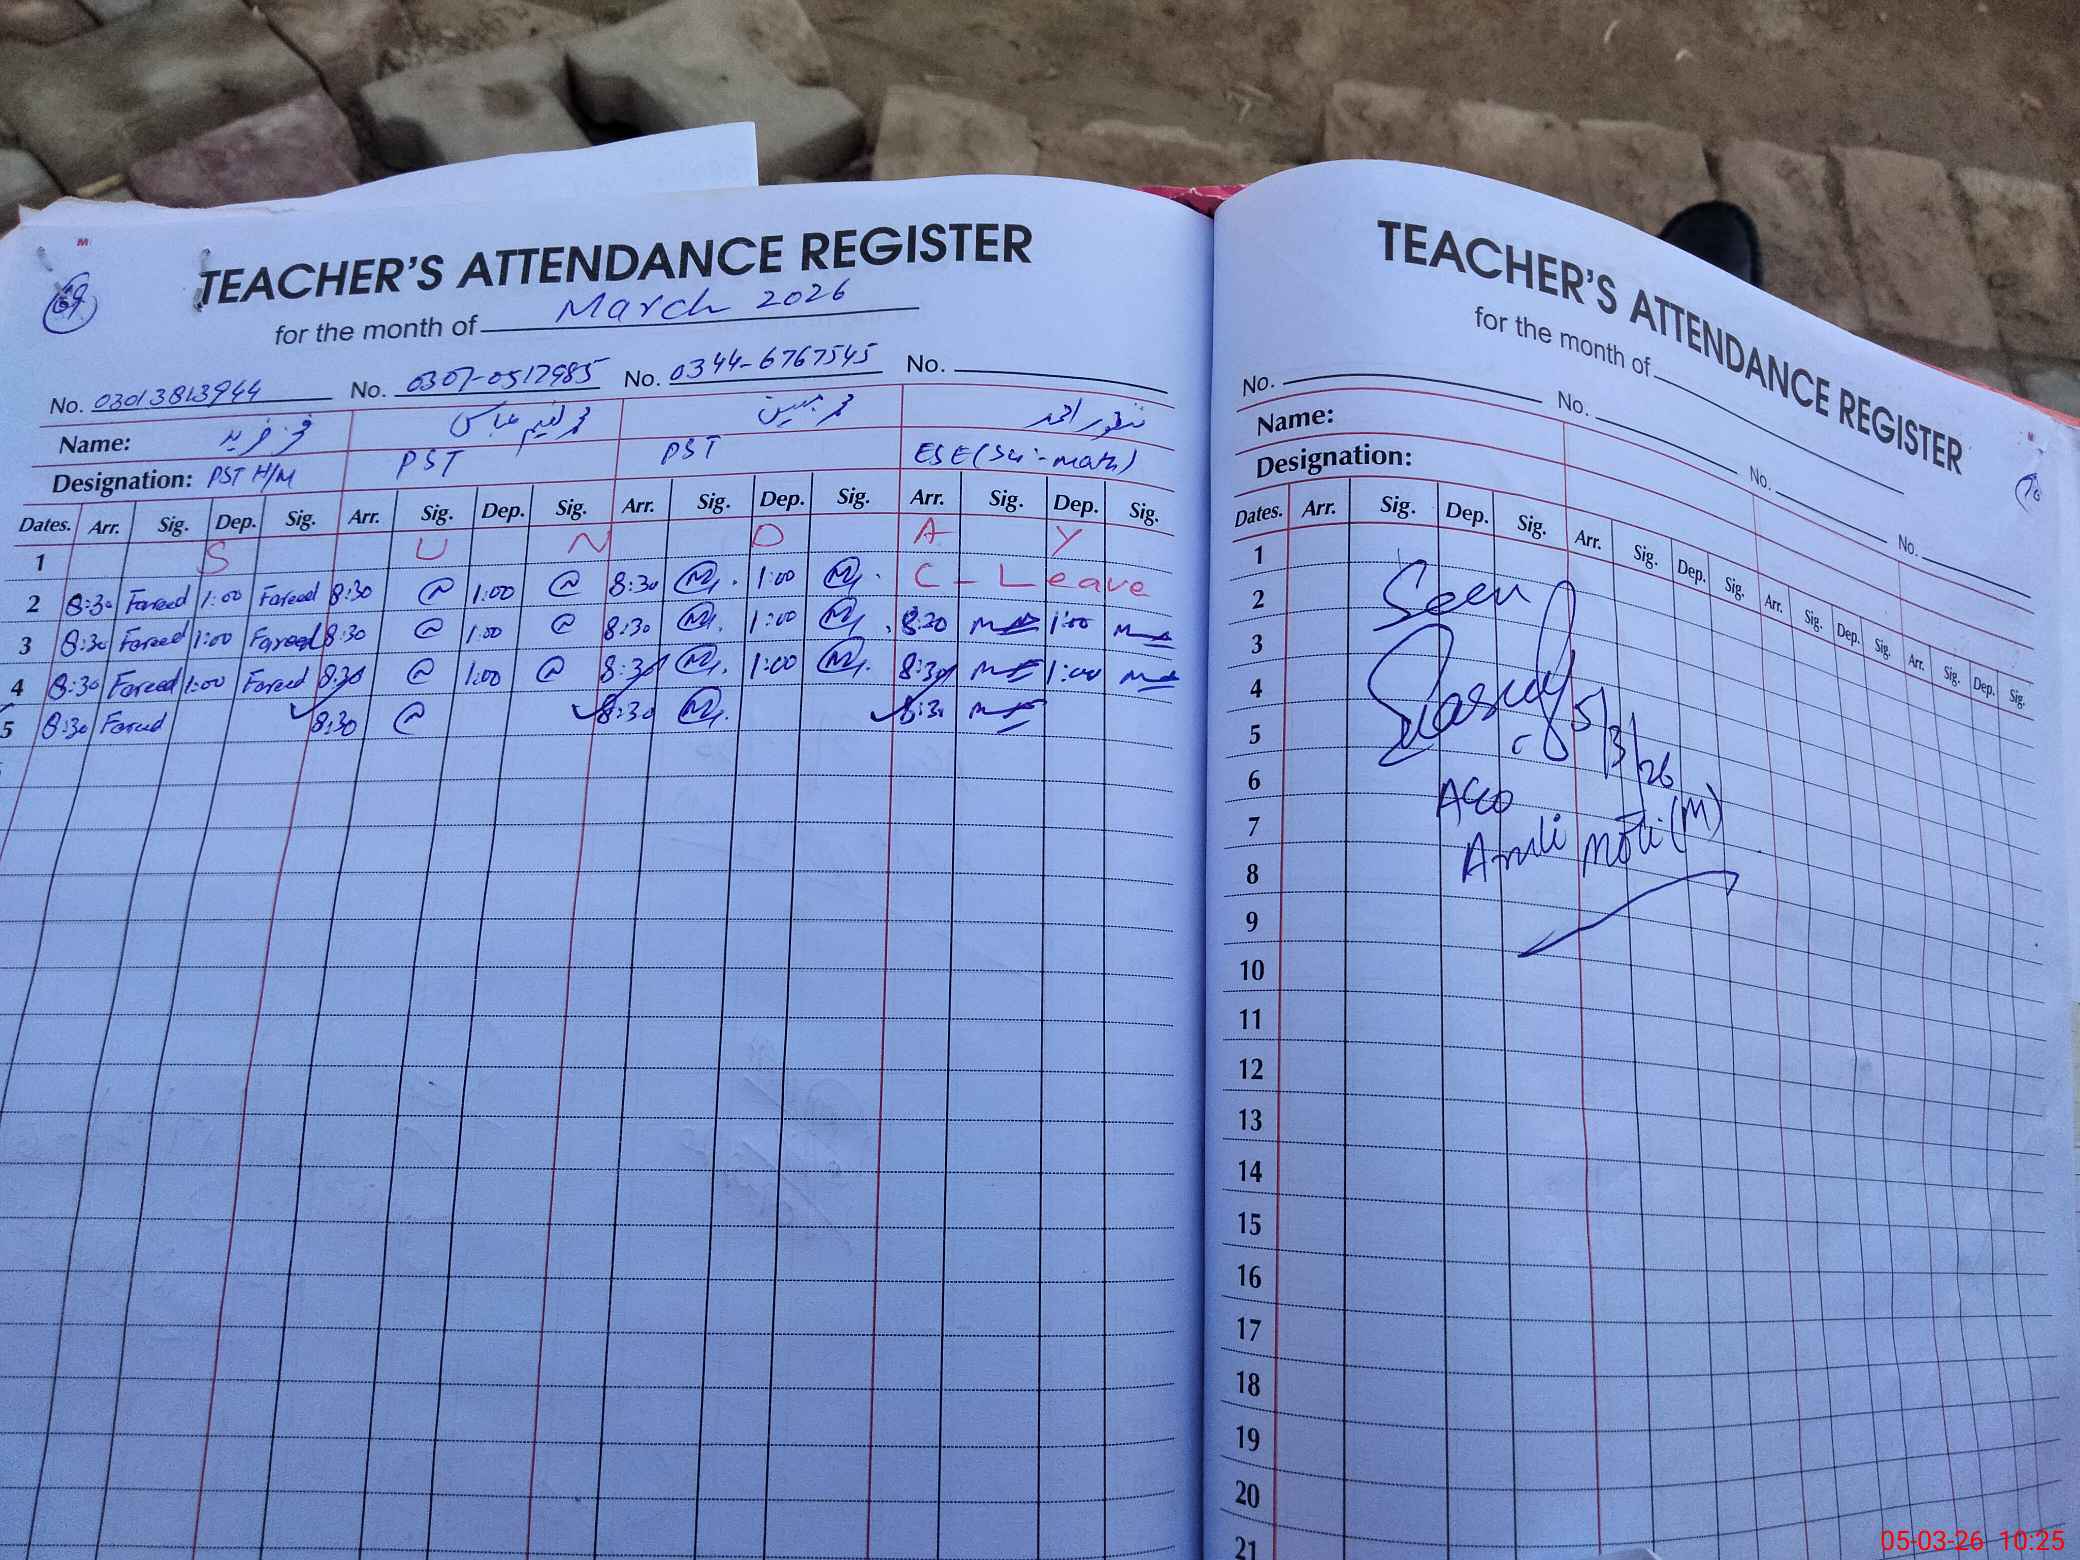 M
69
TEACHER'S ATTENDANCE REGISTER
for the month of March 2026
No. 03013813944 No. 0307-0517985 No. 0344-6767545 No.
Name: محمد نعیم عباس محمد مبین منظور احمد
Designation: PST H/M PST PST ESE (Sci-math)
Dates. Arr. Sig. Dep. Sig. Arr. Sig. Dep. Sig. Arr. Sig. Dep. Sig. Arr. Sig. Dep. Sig.
1 S U N D A Y
2 8:30 Fareed 1:00 Fareed 8:30 1:00 8:30 1:00 C - Leave
3 8:30 Fareed 1:00 Fareed 8:30 1:00 8:30 1:00 8:30 1:00
4 8:30 Fareed 1:00 Fareed 8:30 1:00 8:30 1:00 8:30 1:00
5 8:30 Fareed 8:30 8:30 8:30
TEACHER'S ATTENDANCE REGISTER
70
for the month of
No. No. No. No.
Name:
Designation:
Dates. Arr. Sig. Dep. Sig. Arr. Sig. Dep. Sig. Arr. Sig. Dep. Sig. Arr. Sig. Dep. Sig.
1
2
3
4
5
6
7
8
9
10
11
12
13
14
15
16
17
18
19
20
21
Seen
5/3/26
(M)
05-03-26 10:25